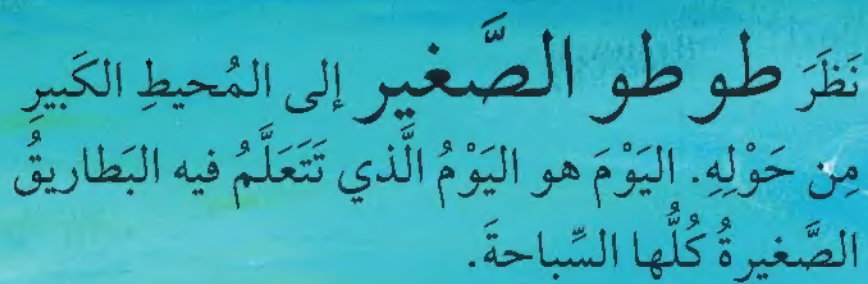 نَظَرَ طو طو الصَّغير إلى المُحيطِ الكَبيرِ
مِن حَوْلِهِ. اليَوْمَ هو اليَوْمُ الَّذي تَتَعَلَّمُ فيه البَطاريقُ
الصَّغيرةُ كُلُّها السِّباحةَ.